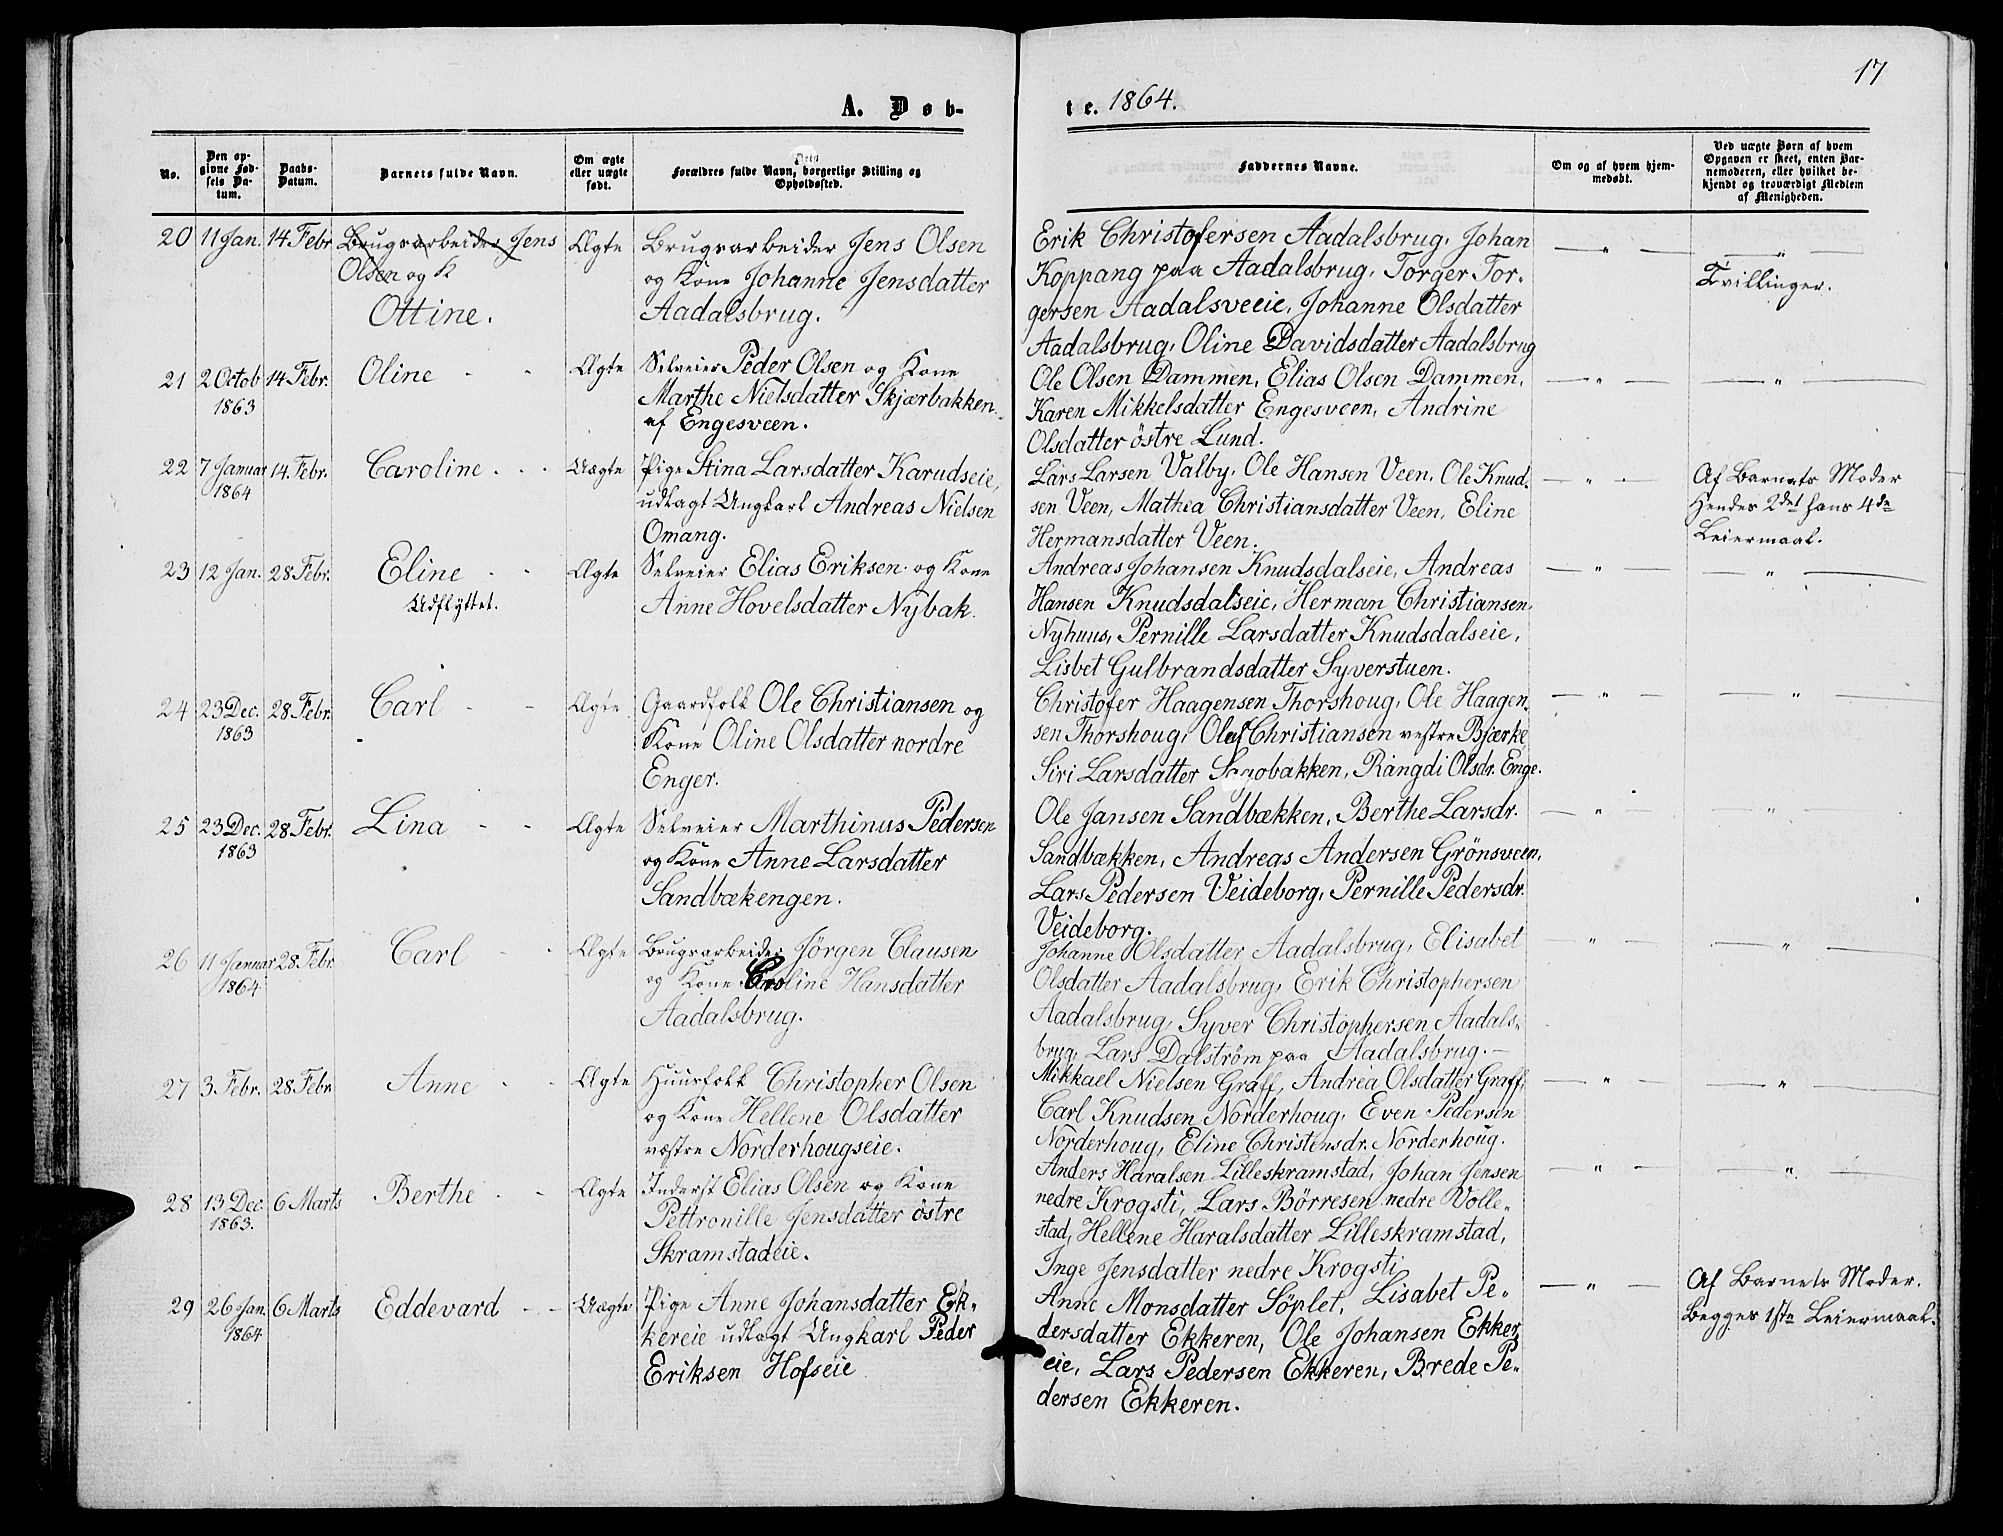 17
A. Døb-
te. 1864.
No.
Den opgivne Fødsels Datum.
Daabs-Datum.
Barnets fulde Navn.
Om ægte eller uægte født.
Forældres fulde Navn, borgerlige Stilling og Opholdssted.
Faddernes Navne.
Om og af hvem hjemmedøbt.
Ved uægte Børn af hvem Opgaven er skeet, enten Barnemoderen, eller hvilket bekjendt og troværdigt Medlem af Menigheden.
20 11 Jan. 14 Febr. Brugsarbeider Jens Ægte Brugsarbeider Jens Olsen
Olsen og K og Kone Johanne Jensdatter
Ottine. Aadalsbrug.
Erik Christofersen Aadalsbrug, Johan
Koppang paa Aadalsbrug, Torger Tor-
gersen Aadalsveeie, Johanne Olsdatter
Aadalsbrug, Oline Davidsdatter Aadalsbrug
Tvillinger.
21 2 Octob 14 Febr. Oline - - Ægte Selveier Peder Olsen og Kone
1863 Marthe Nielsdatter Skjærbakken
af Engesveen.
Ole Olsen Dammen, Elias Olsen Dammen,
Karen Mikkelsdatter Engesveen, Andrine
Olsdatter østre Lund.
22 7 Januar 14. Febr. Caroline. . . Uægte Pige Stina Larsdatter Karudseie,
1864 udlagt Ungkarl Andreas Nielsen
Omang.
Lars Larsen Valby, Ole Hansen Veen, Ole Knud-
sen Veen, Mathea Christiansdatter Veen, Eline
Hermansdatter Veen.
Af Barnets Moder
Hendes 2det hans 4de
Leiermaal.
23 12 Jan. 28 Febr. Eline - - Ægte Selveier Elias Eriksen og Kone
Udflyttet. Anne Hovelsdatter Nybak.
Andreas Johansen Knudsdalseie, Andreas
Hansen Knudsdalseie, Herman Christiansen
Nyhuus, Pernille Larsdatter Knudsdalseie,
Lisbet Gulbrandsdatter Syverstuen.
24 23 Dec. 28 Febr. Carl - - Ægte Gaardfolk Ole Christiansen og
1863 Kone Oline Olsdatter nordre
Enger.
Christofer Haagensen Thorshoug, Ole Haagen-
sen Thorshoug, Oluf Christiansen vestre Bjærke
Siri Larsdatter Sagbakken, Rangdi Olsdr. Enge.
25 23 Dec. 28 Febr. Lina - - Ægte Selveier Marthinus Pedersen
1863 og Kone Anne Larsdatter
Sandbækengen.
Ole Jansen Sandbækken, Berthe Larsdr.
Sandbækken, Andreas Andersen Grönsveen,
Lars Pedersen Veideborg, Pernille Pedersdr.
Veideborg.
26 11 Januar 28 Febr Carl - - Ægte Brugsarbeider Jörgen Clausen
1864 og Kone Caroline Hansdatter
Aadalsbrug.
Johanne Olsdatter Aadalsbrug, Elisabet
Olsdatter Aadalsbrug, Erik Christophersen
Aadalsbrug, Syver Christophersen Aadals-
brug, Lars Dalström paa Aadalsbrug. -
27 3. Febr. 28 Febr Anne - - Ægte Huusfolk Christopher Olsen
og Kone Hellene Olsdatter
vestre Norderhougseie.
Mikkael Nielsen Graff, Andrea Olsdatter Graff,
Carl Knudsen Norderhoug, Even Pedersen
Norderhoug, Eline Christensdr. Norderhoug.
28 13 Dec. 6 Marts Berthe - - Ægte Inderst Elias Olsen og Kone
1863. Pettronille Jensdatter östre
Skramstadeie.
Anders Haralsen Lilleskramstad, Johan Jensen
nedre Krogsti, Lars Börresen nedre Volle-
stad, Hellene Haralsdatter Lilleskramstad,
Inge Jensdatter nedre Krogsti
29 26 Jan. 6 Marts Eddevard - - Uægte Pige Anne Johansdatter Ek-
1864 kereie udlagt Ungkarl Peder
Eriksen Hofseie
Anne Monsdatter Söplet, Lisabet Pe-
dersdatter Ekkeren, Ole Johansen Ekker-
eie, Lars Pedersen Ekkeren, Brede Pe-
dersen Ekkeren.
Af Barnets Moder.
Begges 1ste Leiermaal.